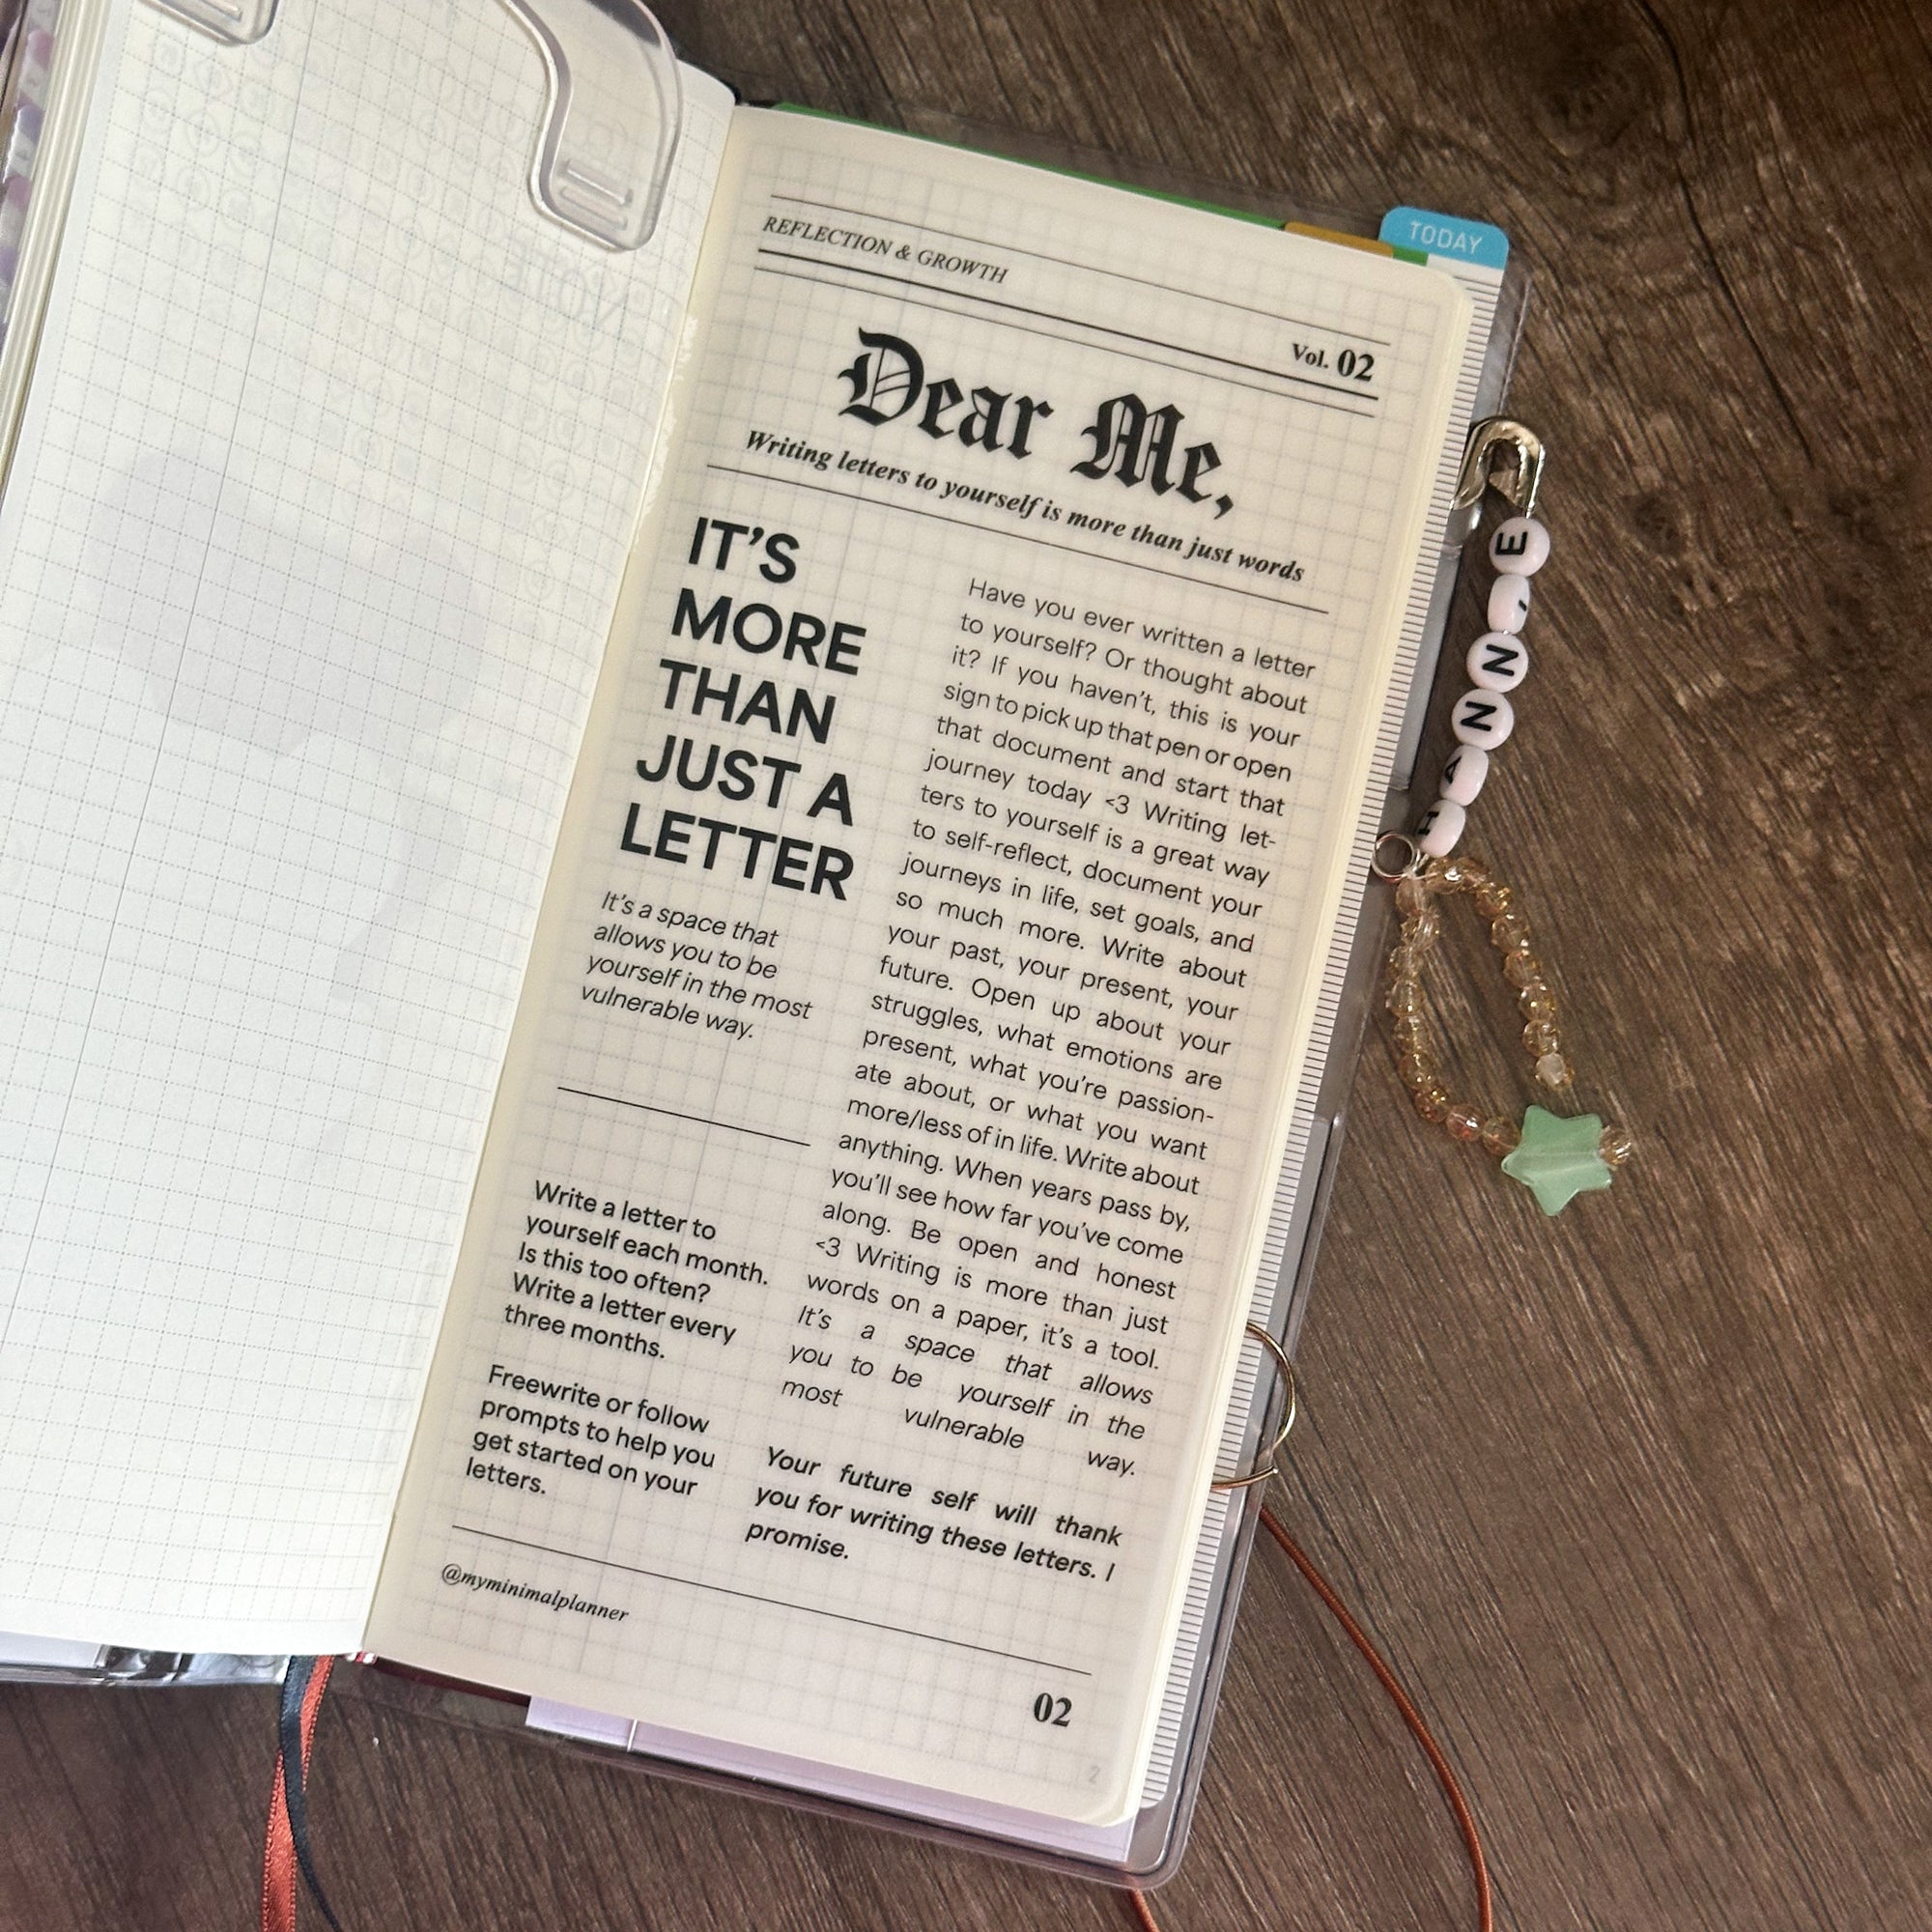 TODAY
REFLECTION & GROWTH
Vol. 02
Dear Me,
Writing letters to yourself is more than just words
IT'S
MORE
THAN
JUST A
LETTER
It's a space that
allows you to be
yourself in the most
vulnerable way.
Write a letter to
yourself each month.
Is this too often?
Write a letter every
three months.
Freewrite or follow
prompts to help you
get started on your
letters.
Have you ever written a letter
to yourself? Or thought about
it? If you haven't, this is your
sign to pick up that pen or open
that document and start that
journey today <3 Writing let-
ters to yourself is a great way
to self-reflect, document your
journeys in life, set goals, and
so much more. Write about
your past, your present, your
future. Open up about your
struggles, what emotions are
present, what you're passion-
ate about, or what you want
more/less of in life. Write about
anything. When years pass by,
you'll see how far you've come
along. Be open and honest
<3 Writing is more than just
words on a paper, it's a tool.
It's a space that allows
you to be yourself in the
most vulnerable way.
Your future self will thank
you for writing these letters. I
promise.
@myminimalplanner
02
2